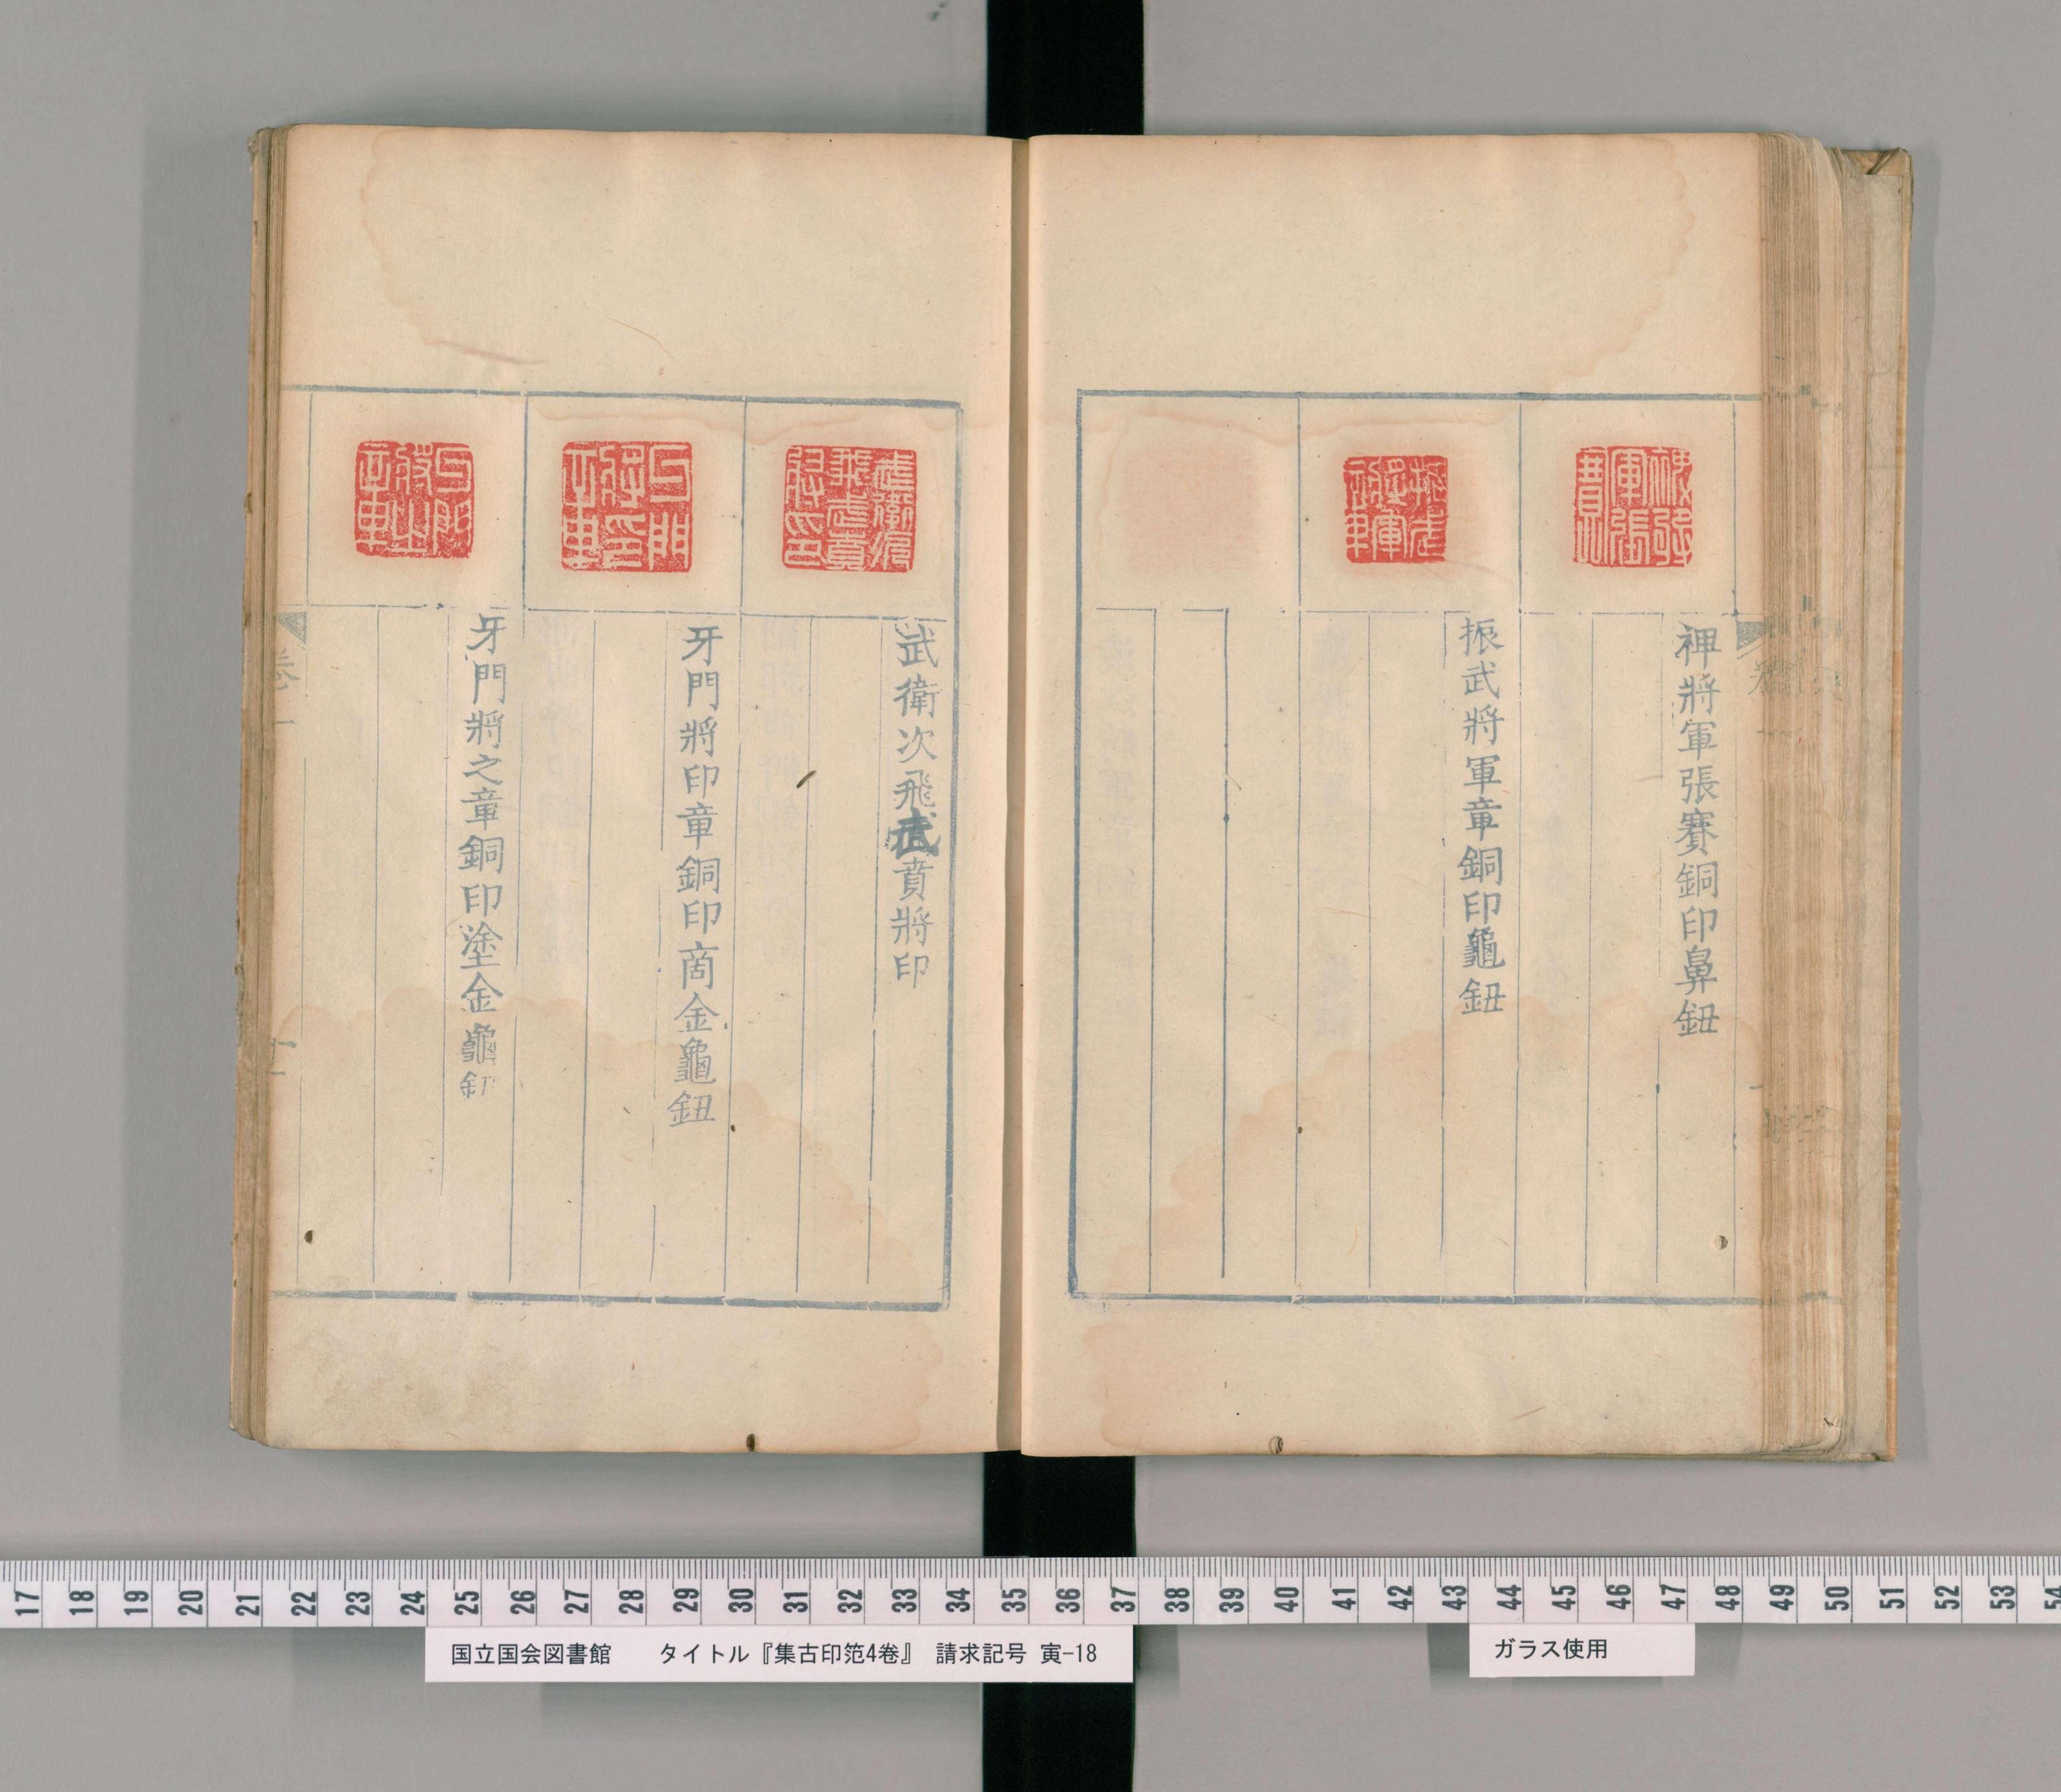 裨將軍張賽銅印鼻鈕
振武將軍章銅印龜鈕
武衛次飛武賁將印
牙門將印章銅印商金龜鈕
牙門將之章銅印塗金龜鈕
卷一
十一
17 18 19 20 21 22 23 24 25 26 27 28 29 30 31 32 33 34 35 36 37 38 39 40 41 42 43 44 45 46 47 48 49 50 51 52 53 54
国立国会図書館 タイトル『集古印笵4巻』 請求記号 寅-18
ガラス使用